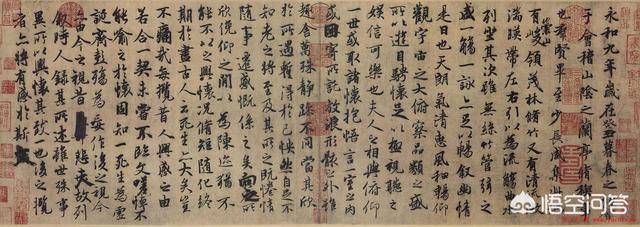 永和九年歲在癸丑暮春之初會
于會稽山陰之蘭亭脩稧事
也群賢畢至少長咸集此地
有崇山峻領茂林脩竹又有清流激
湍暎帶左右引以為流觴曲水
列坐其次雖無絲竹管弦之
盛一觴一詠亦足以暢敘幽情
是日也天朗氣清惠風和暢仰
觀宇宙之大俯察品類之盛
所以遊目騁懷足以極視聽之
娛信可樂也夫人之相與俯仰
一世或取諸懷抱悟言一室之內
或因寄所託放浪形骸之外雖
趣舍萬殊靜躁不同當其欣
於所遇蹔得於己怏然自足不
知老之將至及其所之既惓情
隨事遷感慨係之矣向之所
欣俛仰之閒以為陳迹猶不
能不以之興懷況脩短隨化終
期於盡古人云死生亦大矣豈
不痛哉每攬昔人興感之由
若合一契未嘗不臨文嗟悼不
能喻之於懷固知一死生為虛
誕齊彭殤為妄作後之視今
亦由今之視昔悲夫故列
敘時人錄其所述雖世殊事
異所以興懷其致一也後之攬
者亦將有感於斯
悟空问答